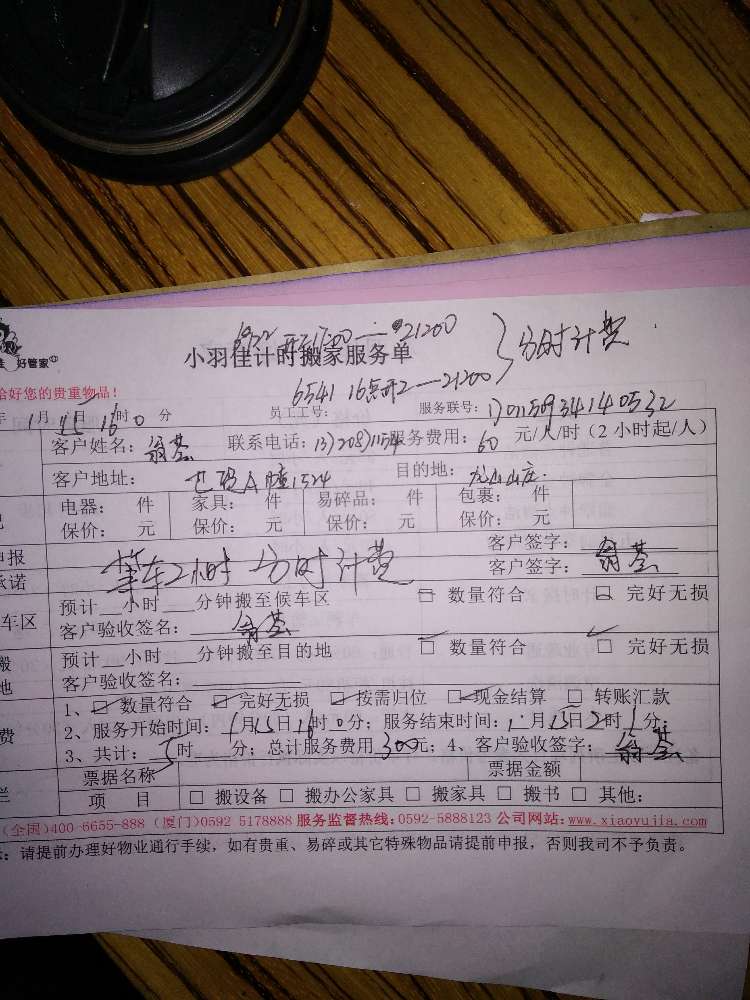 开17:00—21:00
小羽佳计时搬家服务单
分时计费
好管家
6541 16点开2—21:00
给好您的贵重物品！
年1月15日16时0分 员工工号： 服务联号：
客户姓名： 联系电话： 服务费用：60元/人/时（2小时起/人）
客户地址： 1524 目的地：龙山山庄
电器： 件 家具： 件 易碎品： 件 包裹： 件
保价： 元 保价： 元 保价： 元 保价： 元
申报 客户签字：
承诺 等车2小时 分时计费 客户签字：
车区 预计 小时 分钟搬至候车区 □ 数量符合 □ 完好无损
客户验收签名：
搬 预计 小时 分钟搬至目的地 □ 数量符合 □ 完好无损
地 客户验收签名：
1、☑ 数量符合 ☑ 完好无损 ☑ 按需归位 ☑ 现金结算 □ 转账汇款
费 2、服务开始时间：1月15日16时0分；服务结束时间：1月15日21时 分；
3、共计：5时 分；总计服务费用300元；4、客户验收签字：
票据名称 票据金额
栏 项 目 □ 搬设备 □ 搬办公家具 □ 搬家具 □ 搬书 □ 其他：
（全国）400-6655-888（厦门）0592 5178888 服务监督热线：0592-5888123 公司网站：www.xiaoyujia.com
：请提前办理好物业通行手续，如有贵重、易碎或其它特殊物品请提前申报，否则我司不予负责。